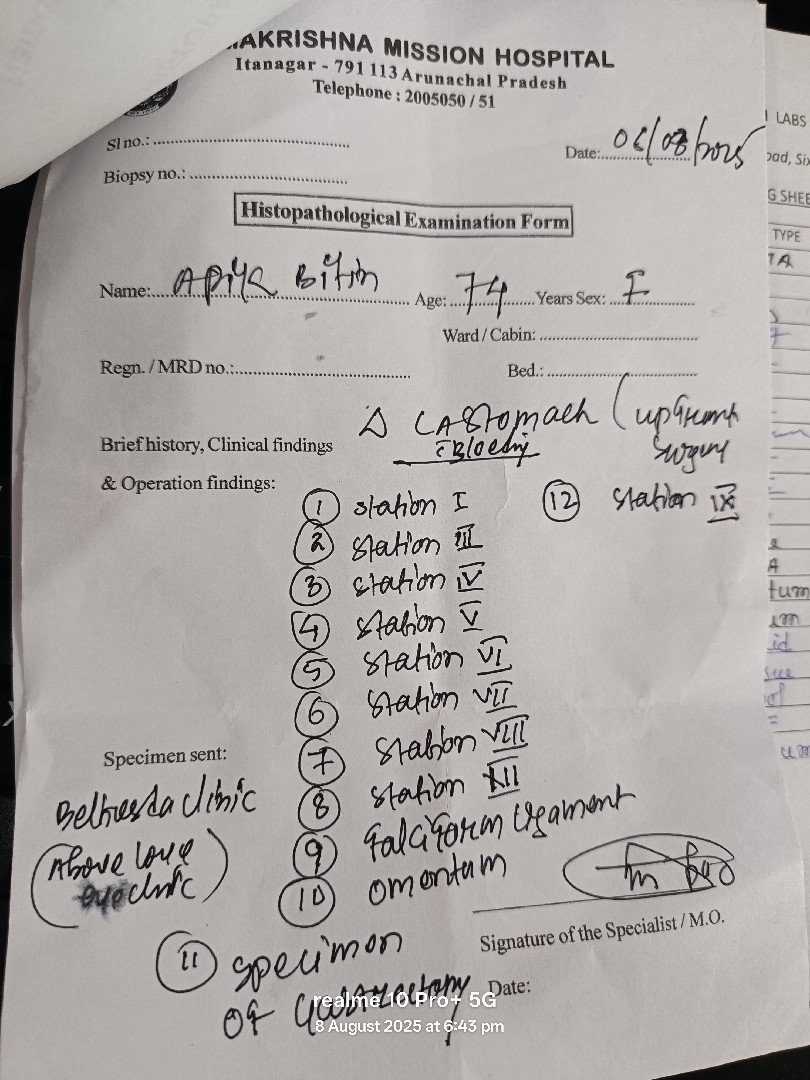 AKRISHNA MISSION HOSPITAL
Itanagar - 791 113 Arunachal Pradesh
Telephone : 2005050 / 51
Sl no.:
Date: 06/08/2025
Biopsy no.:
Histopathological Examination Form
Name: Age: 74 Years Sex: F
Ward / Cabin:
Regn. / MRD no.: Bed.:
Δ CA Stomach (upfront
Brief history, Clinical findings c̄ Bleeding surgery
& Operation findings:
① station I ⑫ station IX
② station III
③ station IV
④ station V
⑤ station VI
⑥ station VII
⑦ station VIII
⑧ station XII
⑨ Falciform ligament
⑩ omentum
Specimen sent:
clinic
(Above love
eye clinic)
Signature of the Specialist / M.O.
⑪ specimen
of
Date:
realme 10 Pro+ 5G
8 August 2025 at 6:43 pm
LABS
oad, Six
G SHEE
TYPE
TA
A
tum
um
id
sue
of
=